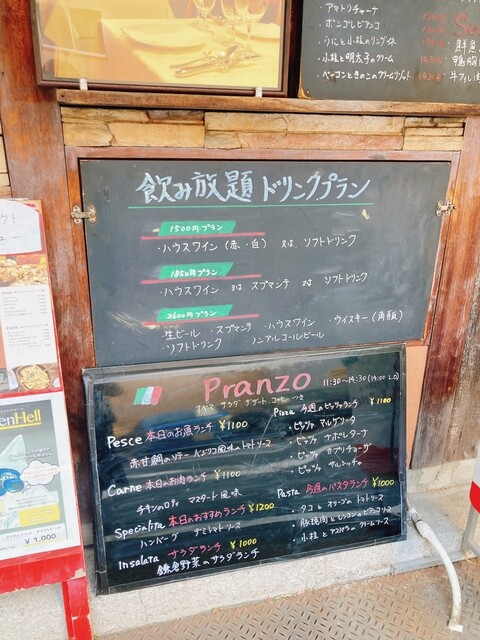 アマトリチャーナ
ボンゴレビアンコ
うにと小柱のリングイネ
小柱と明太子のクリーム
ベーコンときのこのクリームリゾット
飲み放題 ドリンクプラン
1500円プラン
・ハウスワイン (赤・白) 又は ソフトドリンク
1850円プラン
・ハウスワイン 又は スプマンテ 又は ソフトドリンク
2600円プラン
・生ビール ・スプマンテ ・ハウスワイン ・ウイスキー (角瓶)
・ソフトドリンク ノンアルコールビール
Pranzo 11:30~14:30 (14:00 L.O)
すべて サラダ デザート コーヒー つき
Pesce 本日のお魚ランチ ¥1100
赤甘鯛のソテー
Carne 本日のお肉ランチ ¥1100
チキンのロティ マスタード風味
Specialita 本日のおすすめランチ ¥1200
ハンバーグ デミソース
Insalata サラダランチ ¥1000
鎌倉野菜のサラダランチ
Pizza 今週のピッツァランチ ¥1100
・ピッツァ マルゲリータ
・ピッツァ ナポレターナ
・ピッツァ カプリチョーザ
・ピッツァ サルシッチャ
Pasta 今週のパスタランチ ¥1000
・タコとオリーブのトマトソース
enHell
¥1,000